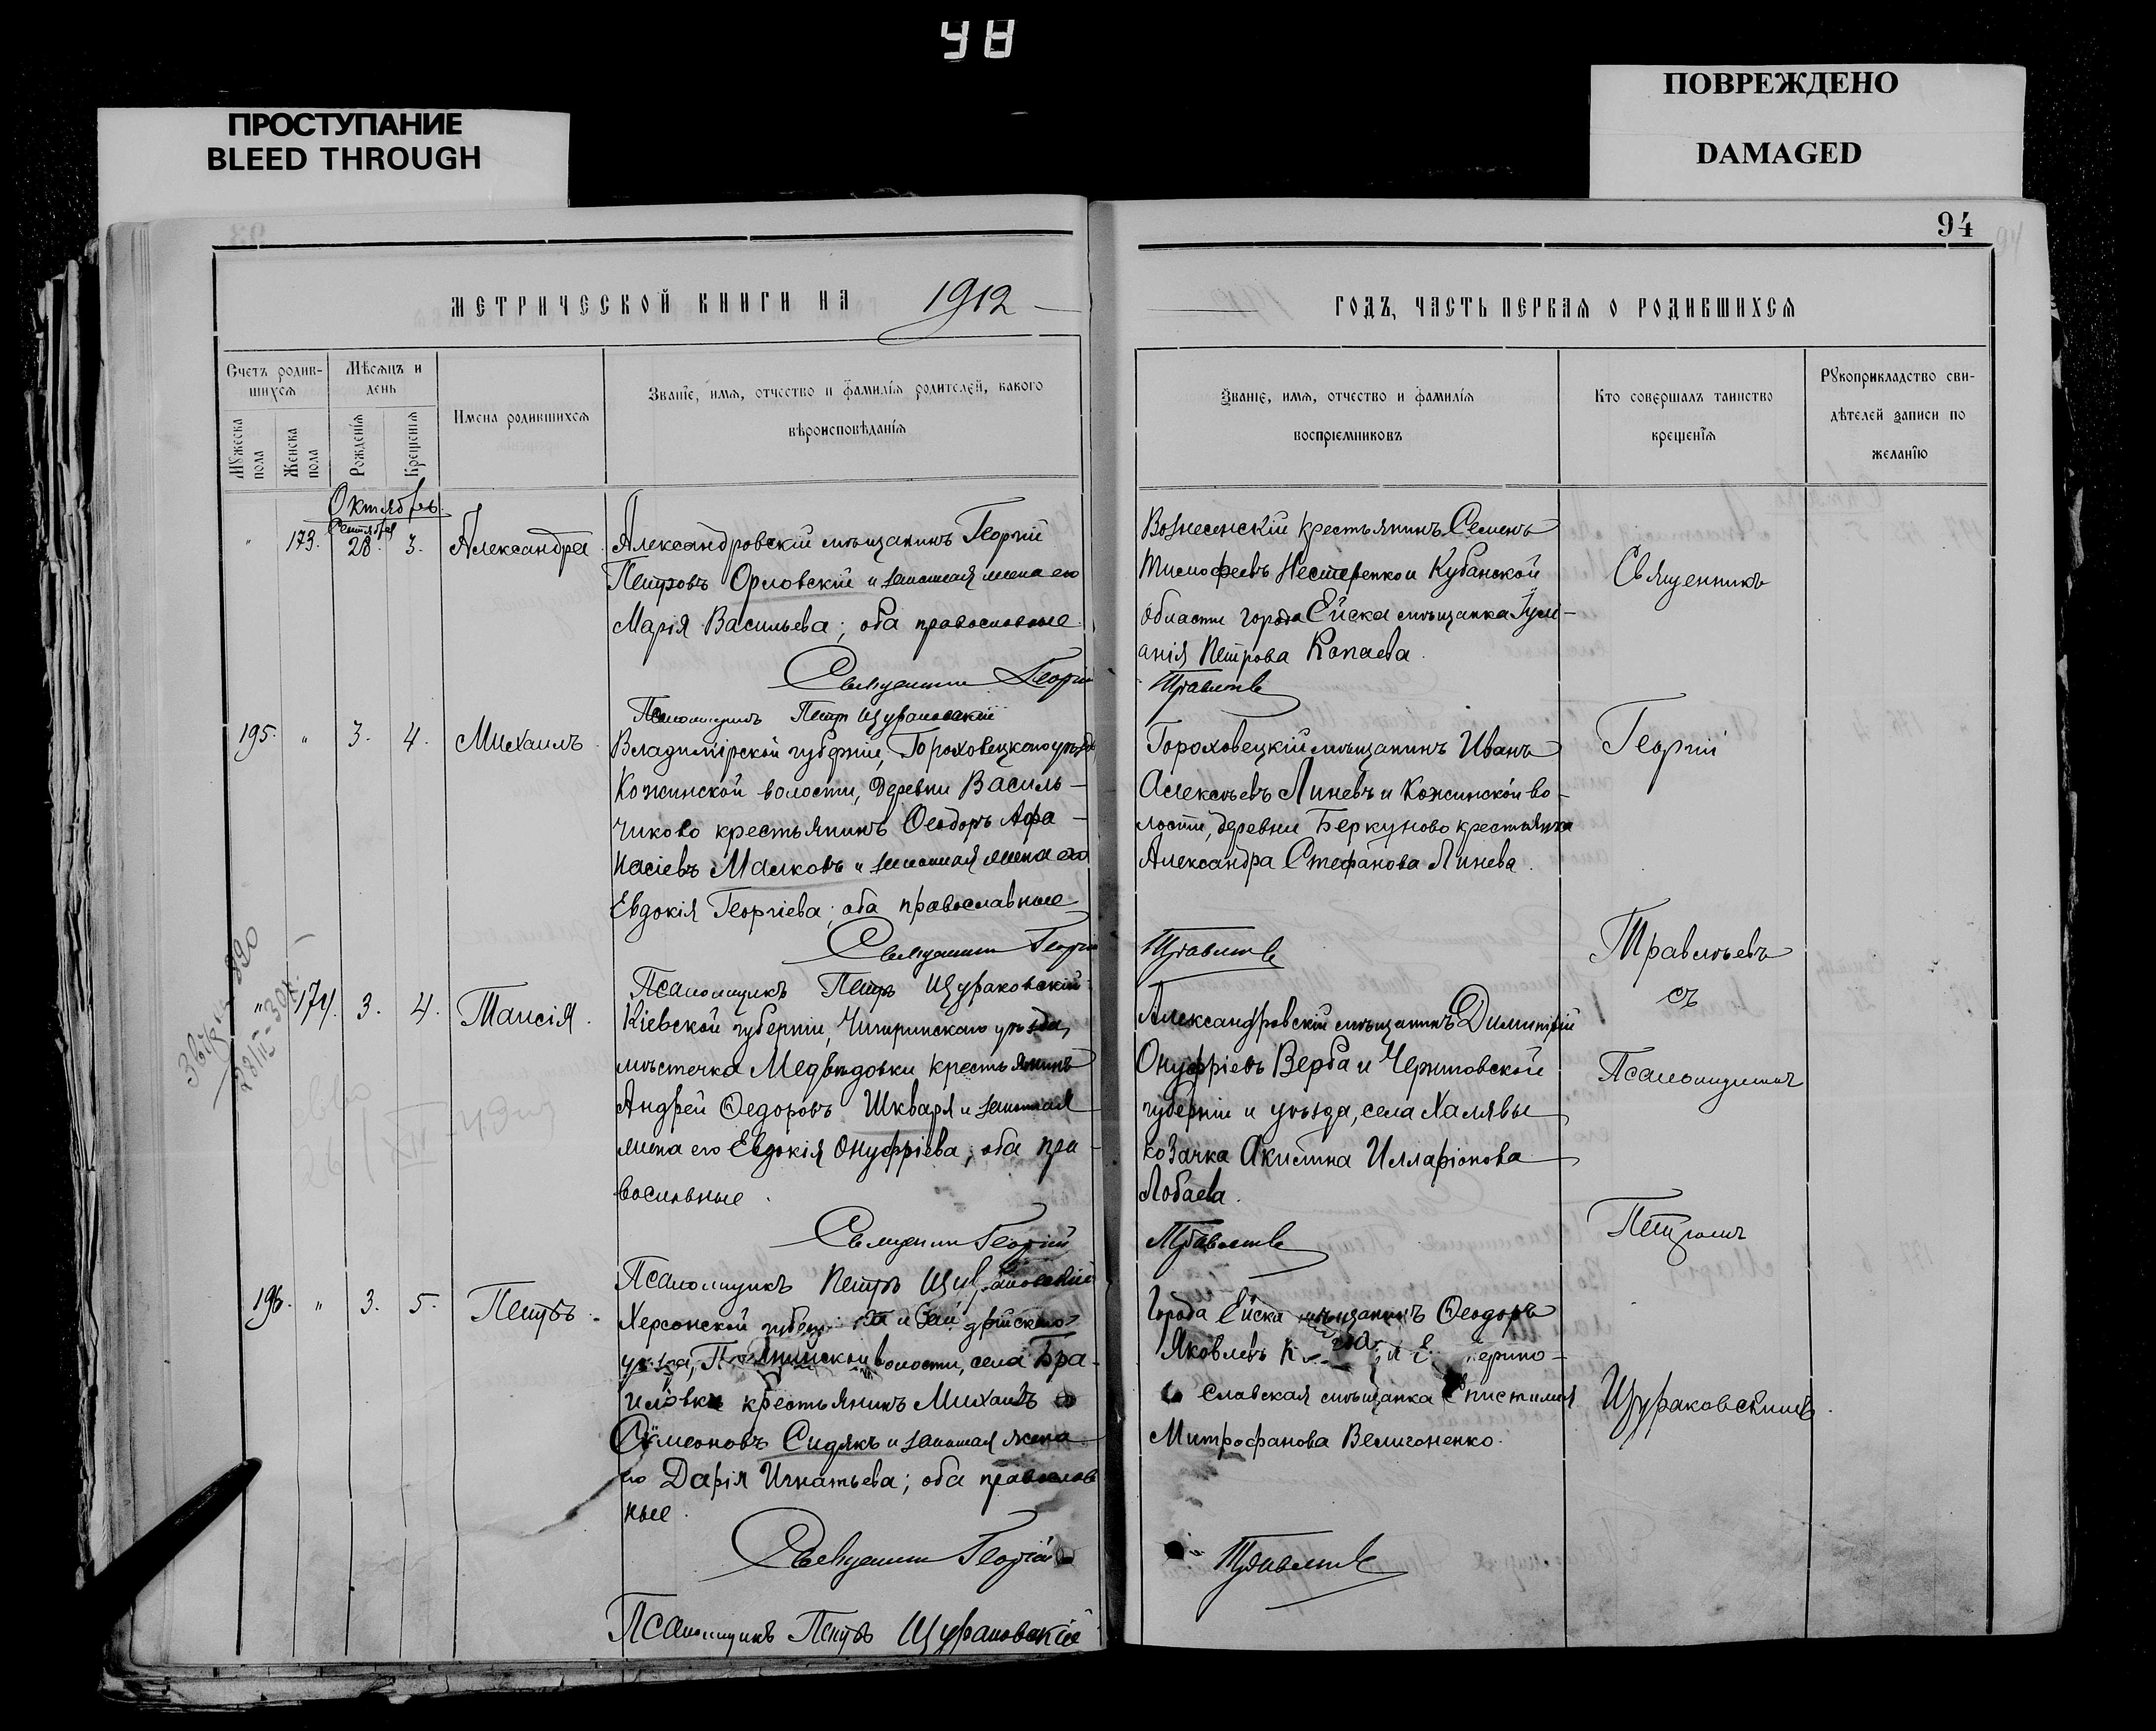 48
ПРОСТУПАНИЕ
BLEED THROUGH
ПОВРЕЖДЕНО
DAMAGED
94
МЕТРИЧЕСКОЙ КНИГИ НА 1912
ГОДЪ, ЧАСТЬ ПЕРВАЯ О РОДИВШИХСЯ
Счетъ родив-
шихся
Мужеска пола
Женска пола
Мѣсяцъ и
день
Рожденія
Крещенія
Имена родившихся
Званіе, имя, отчество и фамилія родителей, какого
вѣроисповѣданія
Званіе, имя, отчество и фамилія
воспріемниковъ
Кто совершалъ таинство
крещенія
Рукоприкладство сви-
дѣтелей записи по
желанію
Октябрь.
Сентября
" 173. 28. 3. Александра
Александровскій мѣщанинъ Георгій
Петровъ Орловскій и законная жена его
Марія Васильева; оба православные.
Священникъ Георгій
Псаломщикъ Петръ Щураковскій
Вознесенскій крестьянинъ Семенъ
Тимофеевъ Нестеренко и Кубанской
области города Ейска мѣщанка Іули-
анія Петрова Копаева.
Травлѣевъ
195. " 3. 4. Михаилъ
Владимірской губерніи, Гороховецкаго уѣзда
Кожинской волости, деревни Василь-
чиково крестьянинъ Ѳеодоръ Афа-
насіевъ Малковъ и законная жена его
Евдокія Георгіева; оба православные
Священникъ Георгій
Псаломщикъ Петръ Щураковскій
Гороховецкій мѣщанинъ Иванъ
Алексѣевъ Линевъ и Кожинской во-
лости, деревни Беркуново крестьянка
Александра Стефанова Линева.
Травлѣевъ
" 174. 3. 4. Таисія.
Кіевской губерніи, Чигиринскаго уѣзда,
мѣстечка Медвѣдовки крестьянинъ
Андрей Ѳедоровъ Шкваря и законная
жена его Евдокія Онуфріева; оба пра-
вославные.
Священникъ Георгій
Псаломщикъ Петръ Щураковскій
Александровскій мѣщанинъ Димитрій
Онуфріевъ Верба и Черниговской
губерніи и уѣзда, села Халявы
козачка Акилина Илларіонова
Лобаева.
Травлѣевъ
196. " 3. 5. Петръ.
Херсонской
уѣзда, волости, села Бра-
иловки крестьянинъ Михаилъ
Симеоновъ Сидякъ и законная жена
его Дарія Игнатьева; оба православ
ные.
Священникъ Георгій
Псаломщикъ Петръ Щураковскій
Города Ейска мѣщанинъ Ѳеодоръ
Яковлевъ
славская мѣщанка Епистимія
Митрофанова Великоненко.
Травлѣевъ
Священникъ
Георгій
Травлѣевъ
съ
Псаломщикомъ
Петромъ
Щураковскимъ.